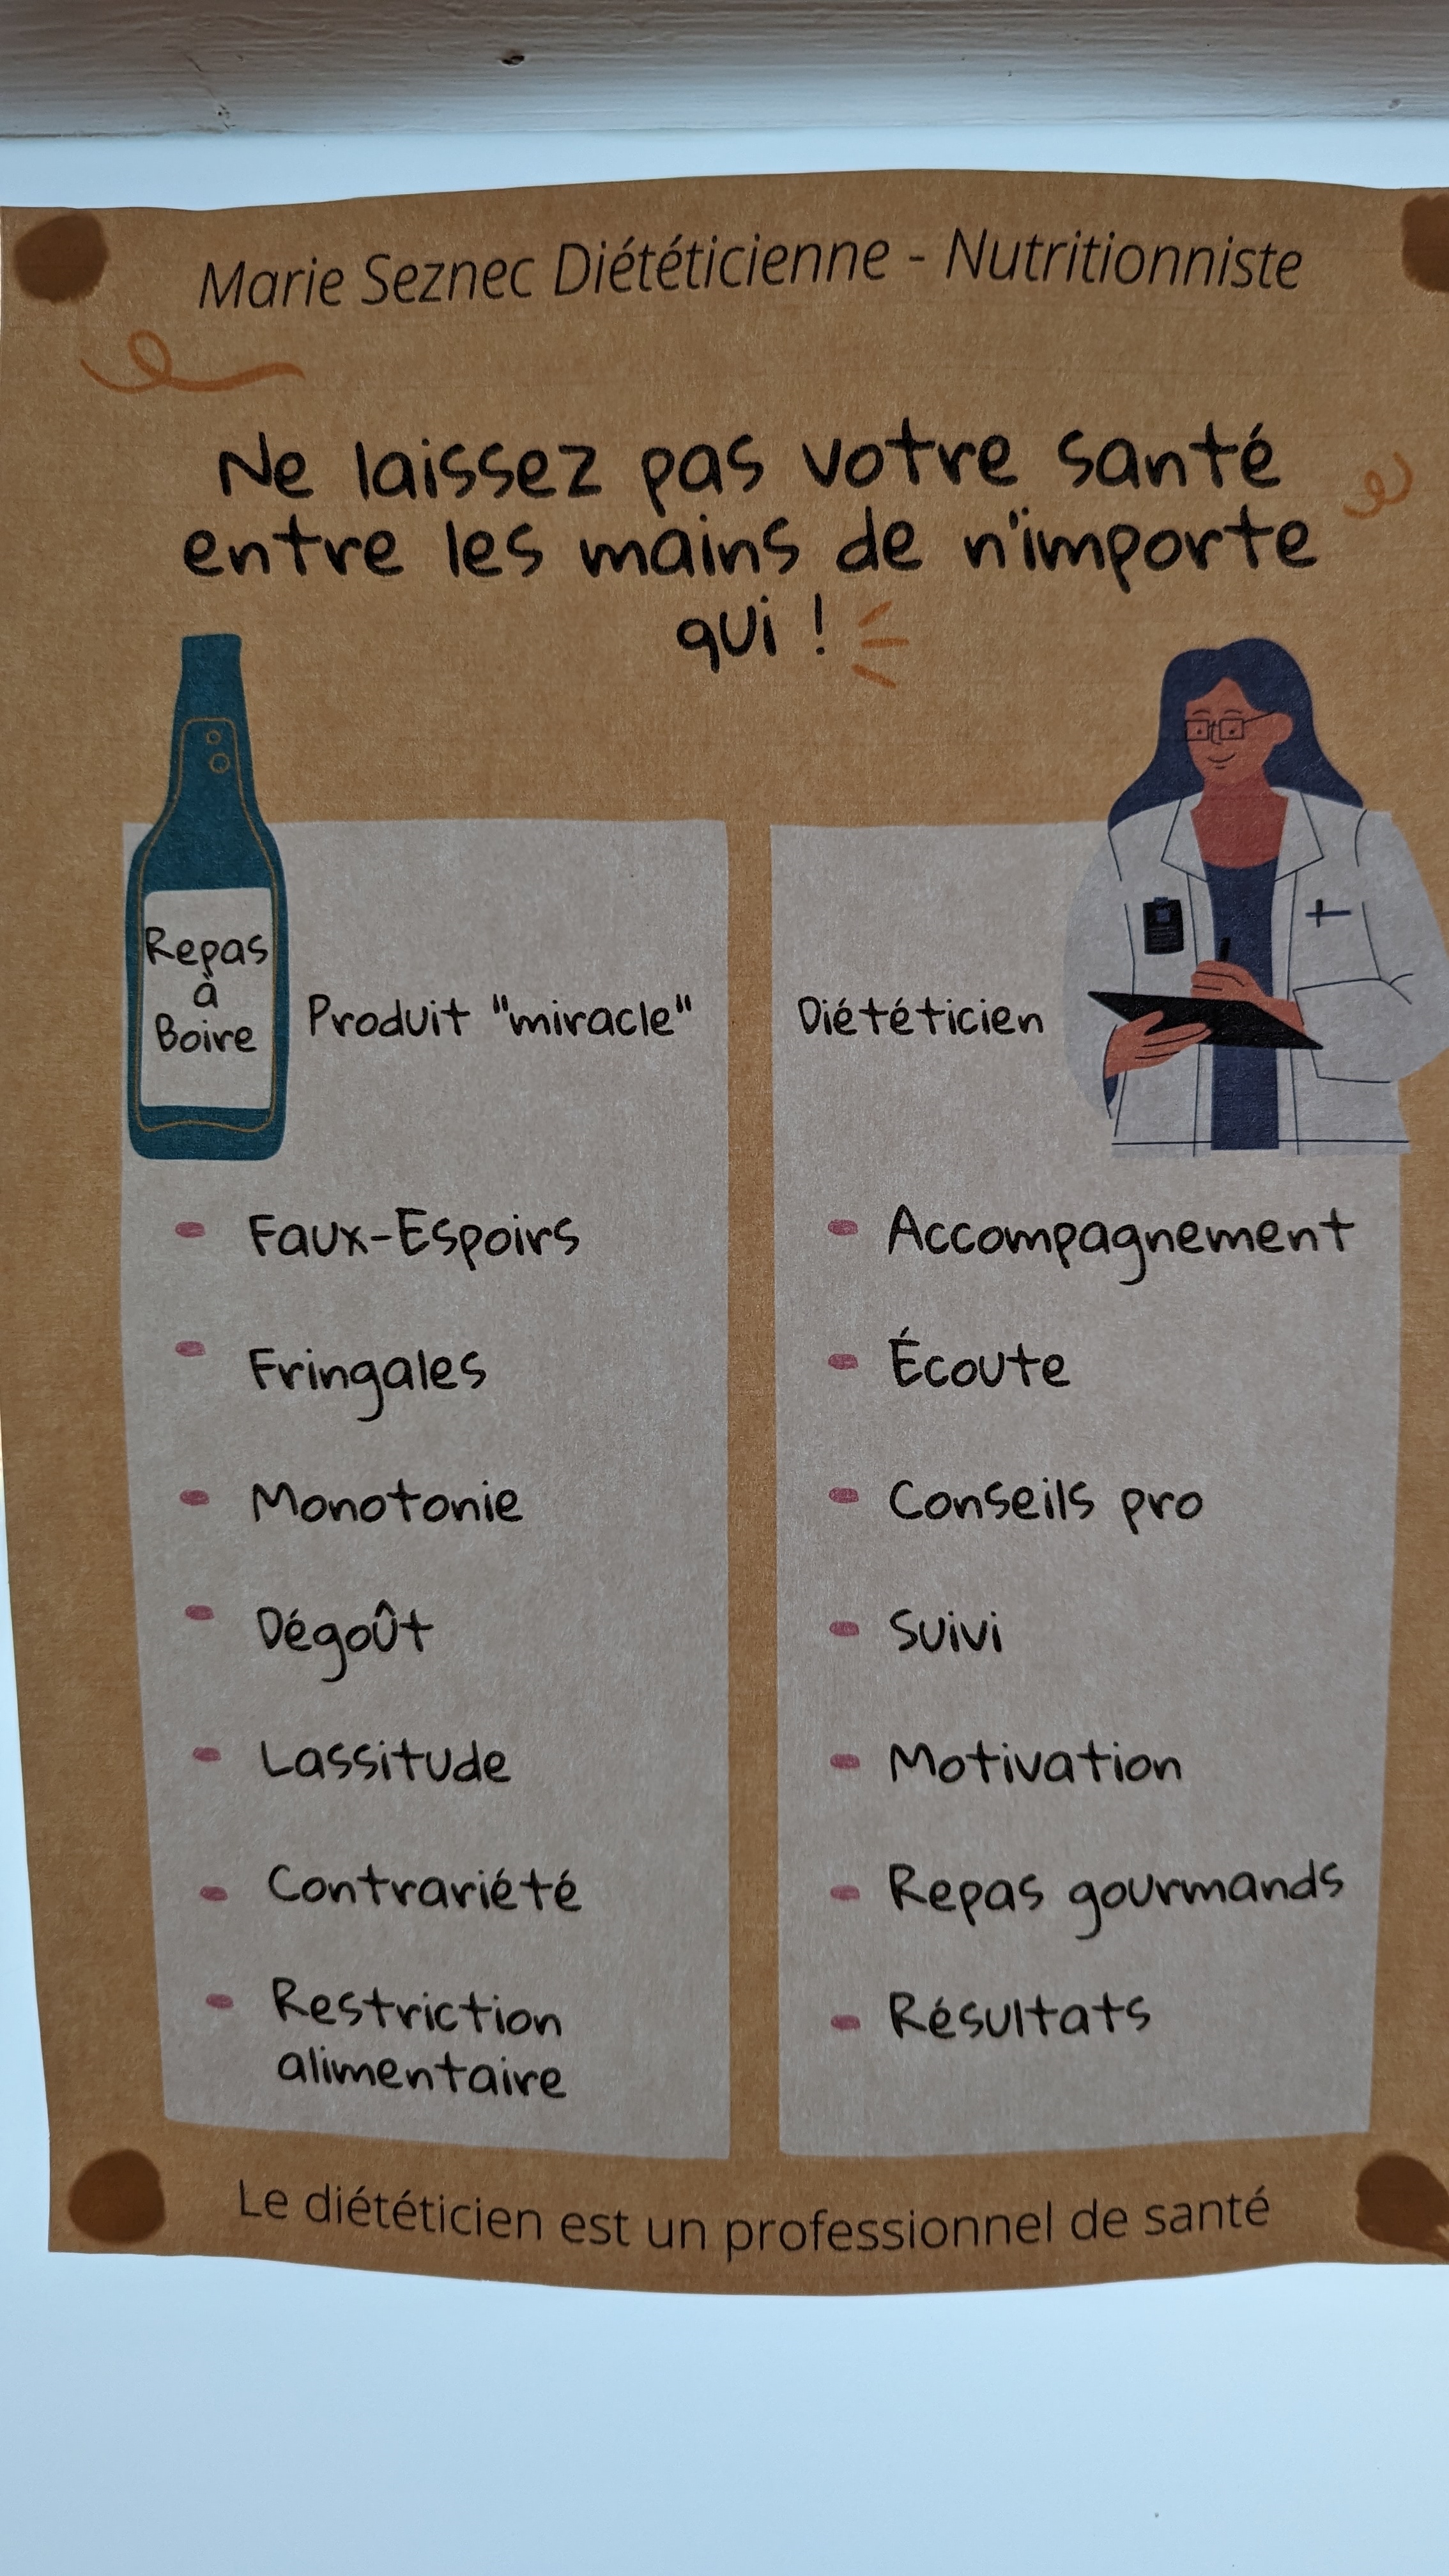 Marie Seznec Diététicienne - Nutritionniste
Ne laissez pas votre santé
entre les mains de n'importe
qui !
Repas
à
Boire
Produit "miracle"
- Faux-Espoirs
- Fringales
- Monotonie
- Dégoût
- Lassitude
- Contrariété
- Restriction
alimentaire
Diététicien
- Accompagnement
- Écoute
- Conseils pro
- Suivi
- Motivation
- Repas gourmands
- Résultats
Le diététicien est un professionnel de santé